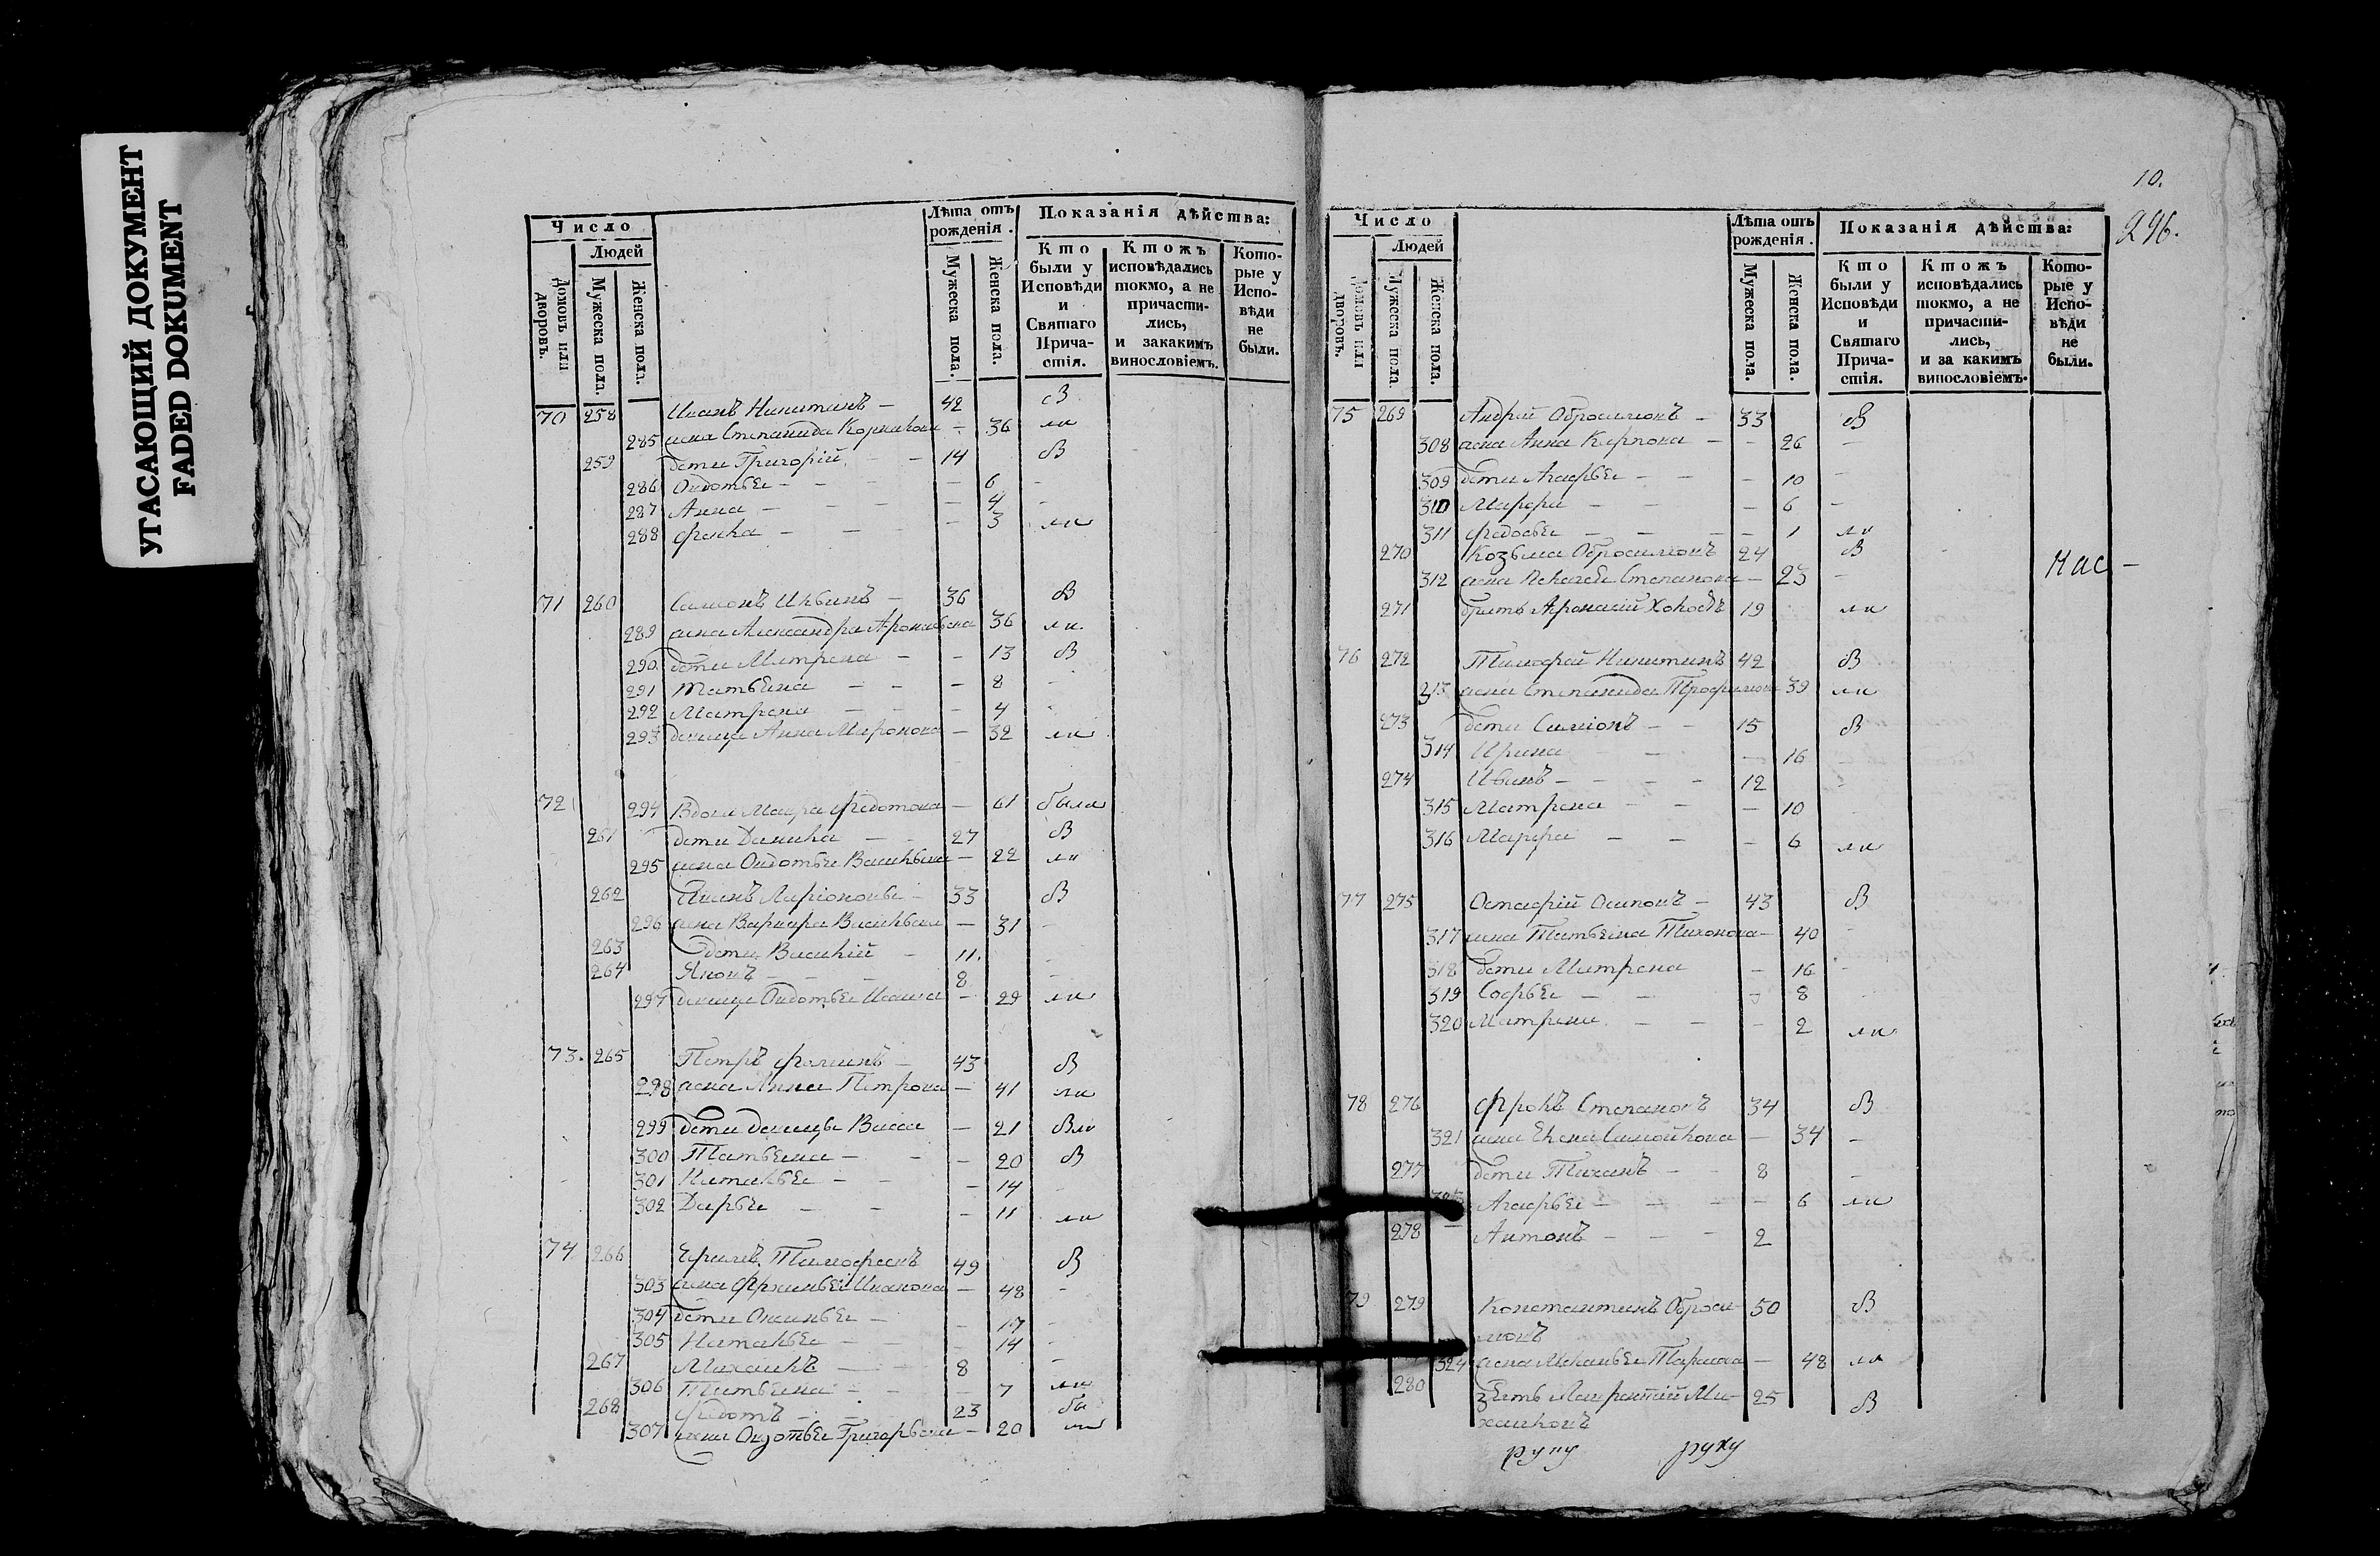 УГАСАЮЩИЙ ДОКУМЕНТ
FADED DOKUMENT
Число
Людей
Домовъ или дворовъ.
Мужеска пола.
Женска пола.
Лѣта отъ рожденія.
Мужеска пола.
Женска пола.
Показанія дѣйства:
Кто были у Исповѣди и Святаго Причастія.
Ктожъ исповѣдались токмо, а не причастились, и закакимъ винословіемъ.
Которые у Исповѣди не были.
70 258 Иванъ Никитинъ — 42 в
285 жена Степанида Корнилова — 36 ли
259 дети Григорій — — 14 в
286 Овдотья — — — 6 -
287 Анна — — — 4 -
288 Фекла — — — 3 ли
71 260 Самонъ Ильинъ — 36 в
289 жена Александра 36 ли.
290. дети Матрена — — 13 в
291 Татьяна — — — 8 -
292 Матрена — — — 4 -
293 девица Анна Миронова — 32 ли
72 294 Вдова Мавра Федотова — 61 была
261 дети Данила — 27 в
295 жена Овдотья Васильева — 22 ли
262 Иванъ Ларіоновъ — 33 в
296 жена Варвара Васильева — 31 -
263 дети Василій — 11. -
264 Яковъ — — — 8 -
297 девица Овдотья — 29 ли
73. 265 Петръ Фоминъ — 43 в
298 жена Анна Петрова — 41 ли
299 дети девицы Васса — 21
300 Татьяна — — — 20 в
301 Наталья — — — 14 -
302 Дарья — — — 11 ли
74 266 Тимофеевъ 49 в
303 жена Ивановa — 48 -
304 дети Оксинья — — 17 -
305 Наталья — — — 14 -
267 Михаилъ — — 8 -
306 Татьяна — — — 7 ли
268 Федотъ — — 23 бы
307 жена Овдотья Григорьева — 20 ли
10.
296.
Число
Людей
Домовъ или дворовъ.
Мужеска пола
Женска пола.
Лѣта отъ рожденія.
Мужеска пола.
Женска пола.
Показанія дѣйства:
Кто были у Исповѣди и Святаго Причастія.
Ктожъ исповѣдались токмо, а не причастились, и за какимъ винословіемъ.
Которые у Исповѣди не были.
75 269 Андрей Обросимовъ — 33 в
308 жена Анна Карпова — — 26 —
309 дети Агафья — — — 10 -
310 Марфа — — — 6 -
311 Федосья — — — 1 ли
270 Козьма Обросимовъ 24 в
312 жена Степанова — 23 —
271 братъ Афонасій 19 ли
76 272 Тимофей Никитинъ 42 в
313 жена Степанида 39 ли
273 дети Симіонъ — — 15 в
314 Ирина — — — 16 —
274 — — — 12 -
315 Матрена — — — 10
316 Марфа — — — 6 ли
77 275 Остафій Осиповъ — 43 в
317 жена Татьяна Тихонова — 40 -
318 дети Матрена — 16 -
319 Софья — — — 8
320 Матрена — — — 2 ли
78 276 Фролъ Степановъ 34 в
321 жена Елена Самойлова — 34 —
277 дети — — 8 —
Агафья — — — 6 ли
278 Антонъ — — — 2
79 279 Константинъ Оброси- 50 в
мовъ
324 жена — 48 ли
280 зять Лаврентій Ми- 25 в
хаиловъ
руку руку